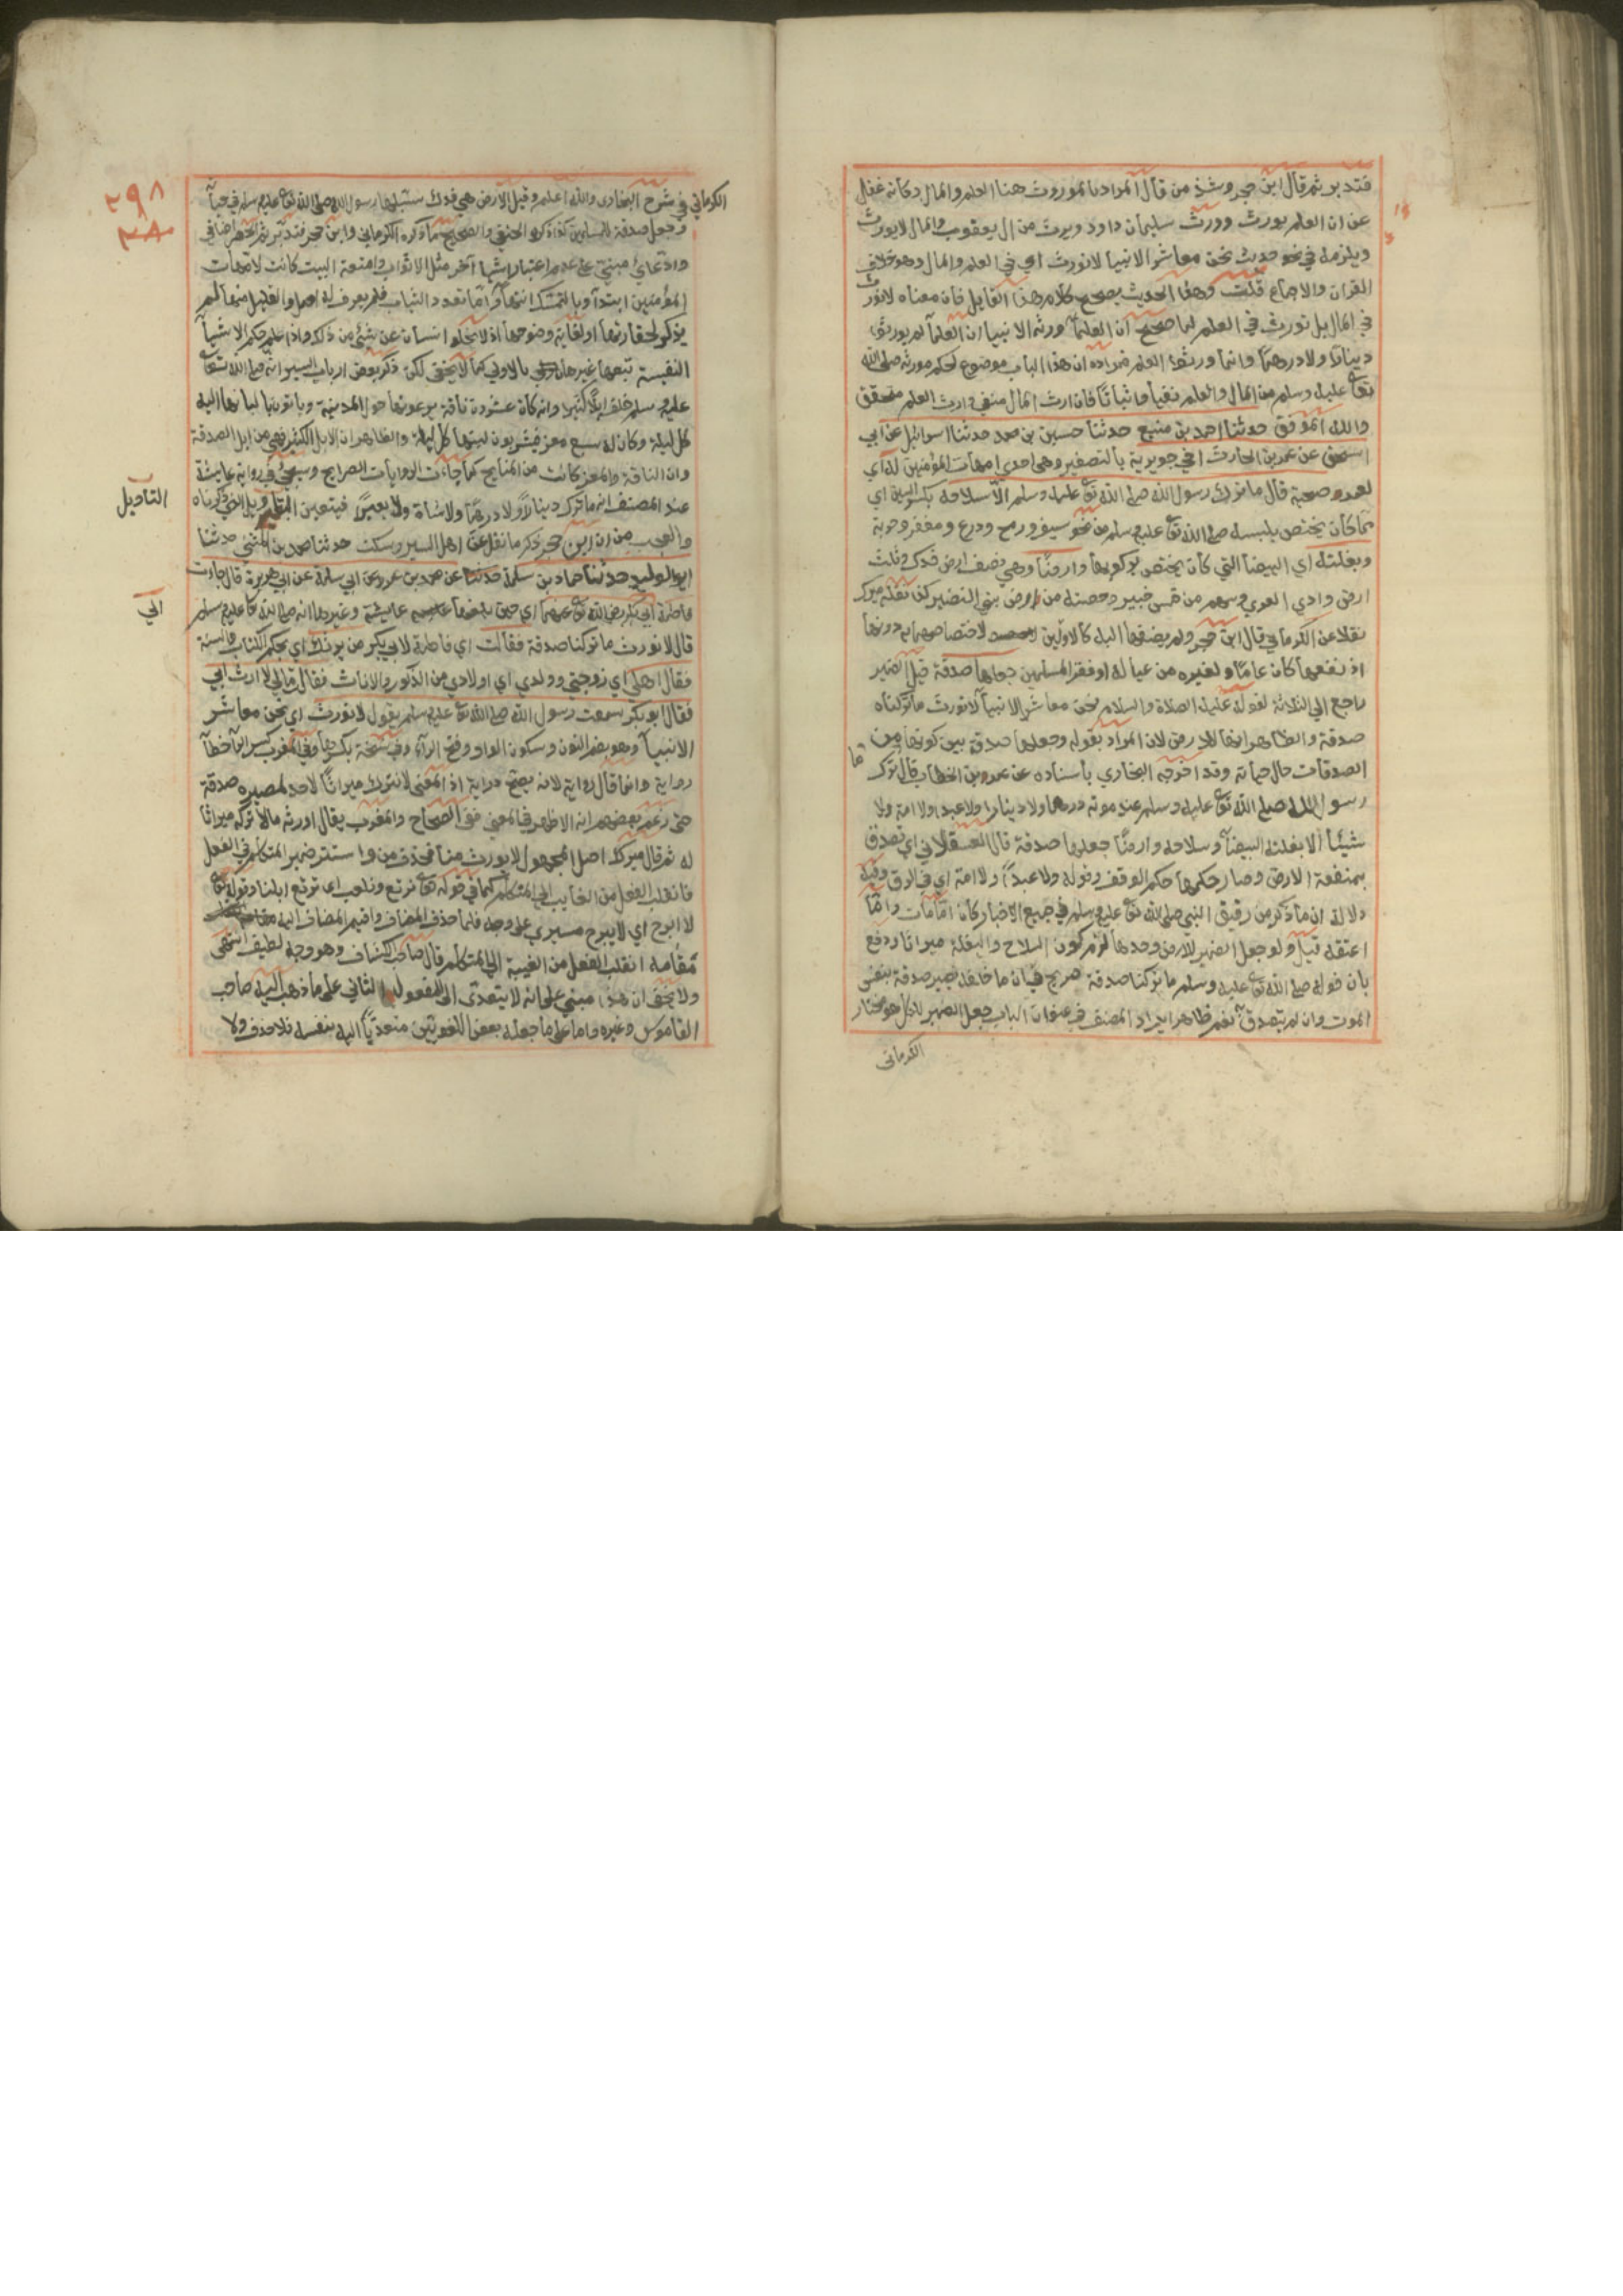 فتدبر ثم قال ابن حجر وشذ من قال المراد بالموروث هنا العلم والمال وكانه غفل
عن ان العلم يورث وورث سليمان داود ويرث من ال يعقوب والمال لا يورث
ويلزمه في نحو حديث نحن معاشر الانبيا لا نورث اي في العلم والمال وهو خلاف
القران والاجماع قلت وهذا الحديث يصحح كلام هذا القايل فان معناه لا نورث
في المال بل نورث في العلم لما صح ان العلمآ ورثة الانبيا ان العلمآ لم يورثوا
دينارًا ولا درهمًا وانما ورثوا العلم فمراده ان هذا الباب موضوع لحكم مورثه صلى الله
تعا عليه وسلم من المال والعلم نفيا واثباتًا فان ارث المال منفي وارث العلم متحقق
والله الموفق حدثنا احمد بن منيع حدثنا حسين بن محمد حدثنا اسرائيل عن ابي
اسحق عن عمرو بن الحارث اخي جويرية بالتصغير وهي احدي امهات المؤمنين له اي
لعمرو صحبة قال ما ترك رسول الله صلي الله تعا عليه وسلم الا سلاحه بكسر السين اي
مما كان يختص بلبسه صلي الله تعا عليه وسلم من نحو سيف ورمح ودرع ومغفر وحربة
وبغلته اي البيضا التي كان يختص بركوبها وارضًا وهي نصف ارض فدك وثلث
ارض وادي القري وسهم من خمس خيبر وحصته من ارض بني النضير كذا نقله ميرك
نقلا عن الكرماني قال ابن حجر ولم يضفها اليه كالاولين لاختصاصهما به دونها
اذ نفعها كان عامًا له ولغيره من عياله او فقرا المسلمين جعلها صدقة قيل الضمير
راجع الي الثلاثة لقوله عليه الصلاة والسلام نحن معاشر الانبيآ لا نورث ما تركناه
صدقة والظاهر انها للارض لان المراد بقوله وجعلها صدقة بين كونها من
الصدقات حال حياته وقد اخرجه البخاري باسناده عن عمرو بن الحارث قال ما ترك
رسول الله صلي الله تعا عليه وسلم عند موته درهما ولا دينارا ولا عبدا ولا امة ولا
شيئًا الا بغلته البيضآ وسلاحه وارضًا جعلها صدقة قال العسقلاني اي تصدق
بمنفعة الارض وصار حكمها حكم الوقف وقوله ولا عبدًا ولا امة اي في الرق وفيه
دلالة ان ما ذكر من رقيق النبي صلى الله تعا عليه وسلم في جميع الاخبار كان اما مات واما
اعتقه قيل ولو جعل الضمير للارض وحدها لزم كون السلاح والبغلة ميراثا ودفع
بان قوله صلي الله تعا عليه وسلم ما تركنا صدقة صريح في ان ما خلفه يصير صدقة بنفس
الموت وان لم يتصدق به نعم ظاهر ايراد المصنف في عنوان الباب جعل الضمير للكل هو مختار
الكرماني
٢٩٨
الكرماني في شرح البخاري والله اعلم وقيل الارض هي فدك سبلها رسول الله صلى الله تعا عليه وسلم في حياته
وجعل صدقة للمسلمين كذا ذكره الحنفي والصحيح ما ذكره الكرماني وابن حجر فتدبر ثم الحصر اضافي
وادعائي مبني على عدم اعتبار اشيا آخر مثل الاثواب وامتعة البيت كانت لامهات
المؤمنين ابتدآ وبالتمليك انتهآ واما تعدد الثياب فلم يعرف له اصل والقليل منها لم
يذكر لحقارتها او لغاية وضوحها اذ لا يخلو انسان عن شيئ من ذلك واذا علم حكم الاشيآ
النفيسة تبعها غيرها بالاولي كما لا يخفي لكن ذكر بعض ارباب السير انه صلى الله تعا
عليه وسلم خلف ابلًا كثيرة وانه كان عشرون ناقة يرعونها حول المدينة وياتون بالبانها اليه
كل ليلة وكان له سبع معز فيشربون لبنها كل ليلة والظاهر ان الابل الكثير هي من ابل الصدقة
وان الناقة والمعز كانت من المنايح كما جاءت الروايات الصرايح وسيجئ في رواية عايشة
عند المصنف انه ما ترك دينارًا ولا درهمًا ولا شاة ولا بعيرًا فيتعين التاويل الذي ذكرناه
التاويل
والعجب من ان ابن حجر ذكر ما نقل عن اهل السير وسكت حدثنا محمد بن المثنى حدثنا
ابو الوليد حدثنا حماد بن سلمة حدثنا عن محمد بن عمرو عن ابي سلمة عن ابي هريرة قال جاءت
الي
فاطمة ابي بكر رضي الله تعا عنهما اي حين بلغها عايشة وغيرها انه صلى الله تعا عليه وسلم
قال لا نورث ما تركنا صدقة فقالت اي فاطمة لابي بكر من يرثك اي بحكم الكتاب والسنة
فقال اهلي اي زوجتي وولدي اي اولادي من الذكور والاناث فقالت مالي لا ارث ابي
فقال ابو بكر سمعت رسول الله صلى الله تعا عليه وسلم يقول لا نورث اي نحن معاشر
الانبيآ وهو بضم النون وسكون الواو وفتح الرآء وفي نسخة بكسرها وفي المغرب كسر الرآ خطآ
رواية وانما قال رواية لانه يصح دراية اذ المعنى لا نترك ميراثًا لاحد لمصيره صدقة
حتى زعم بعضهم انه الاظهر في المعني ففي الصحاح والمغرب يقال اورثه مالا تركه ميراثا
له ثم قال ميرك اصل المجهول لا يورث منا فحذف من واستتر ضمير المتكلم في الفعل
فانقلب الفعل من الغايب الى المتكلم كما في قوله تعا نرتع ونلعب اي ترتع ابلنا وقوله تعا
لا ابرح اي لا يبرح مسيري على وجه فلما حذف المضاف واقيم المضاف اليه
مقامه انقلب الفعل من الغيبة الى المتكلم قال صاحب الكشاف وهو وجه لطيف انتهى
ولا يخفى ان هذا مبني على انه لا يتعدى الى المفعول الثاني على ما ذهب اليه صاحب
القاموس وغيره واما على ما جعله بعض اللغويين متعديًا اليه بنفسه فلا حذف ولا